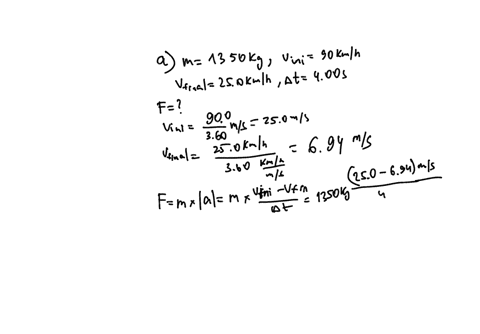 a) m = 1350 kg, v_ini = 90 km/h
v_final = 25.0 km/h, Δt = 4.00s
F = ?
v_ini = 90.0/3.60 m/s = 25.0 m/s
v_final = 25.0 km/h / 3.60 (km/h)/(m/s) = 6.94 m/s
F = m × |a| = m × (v_ini - v_fin)/Δt = 1350 kg (25.0 - 6.94) m/s / 4